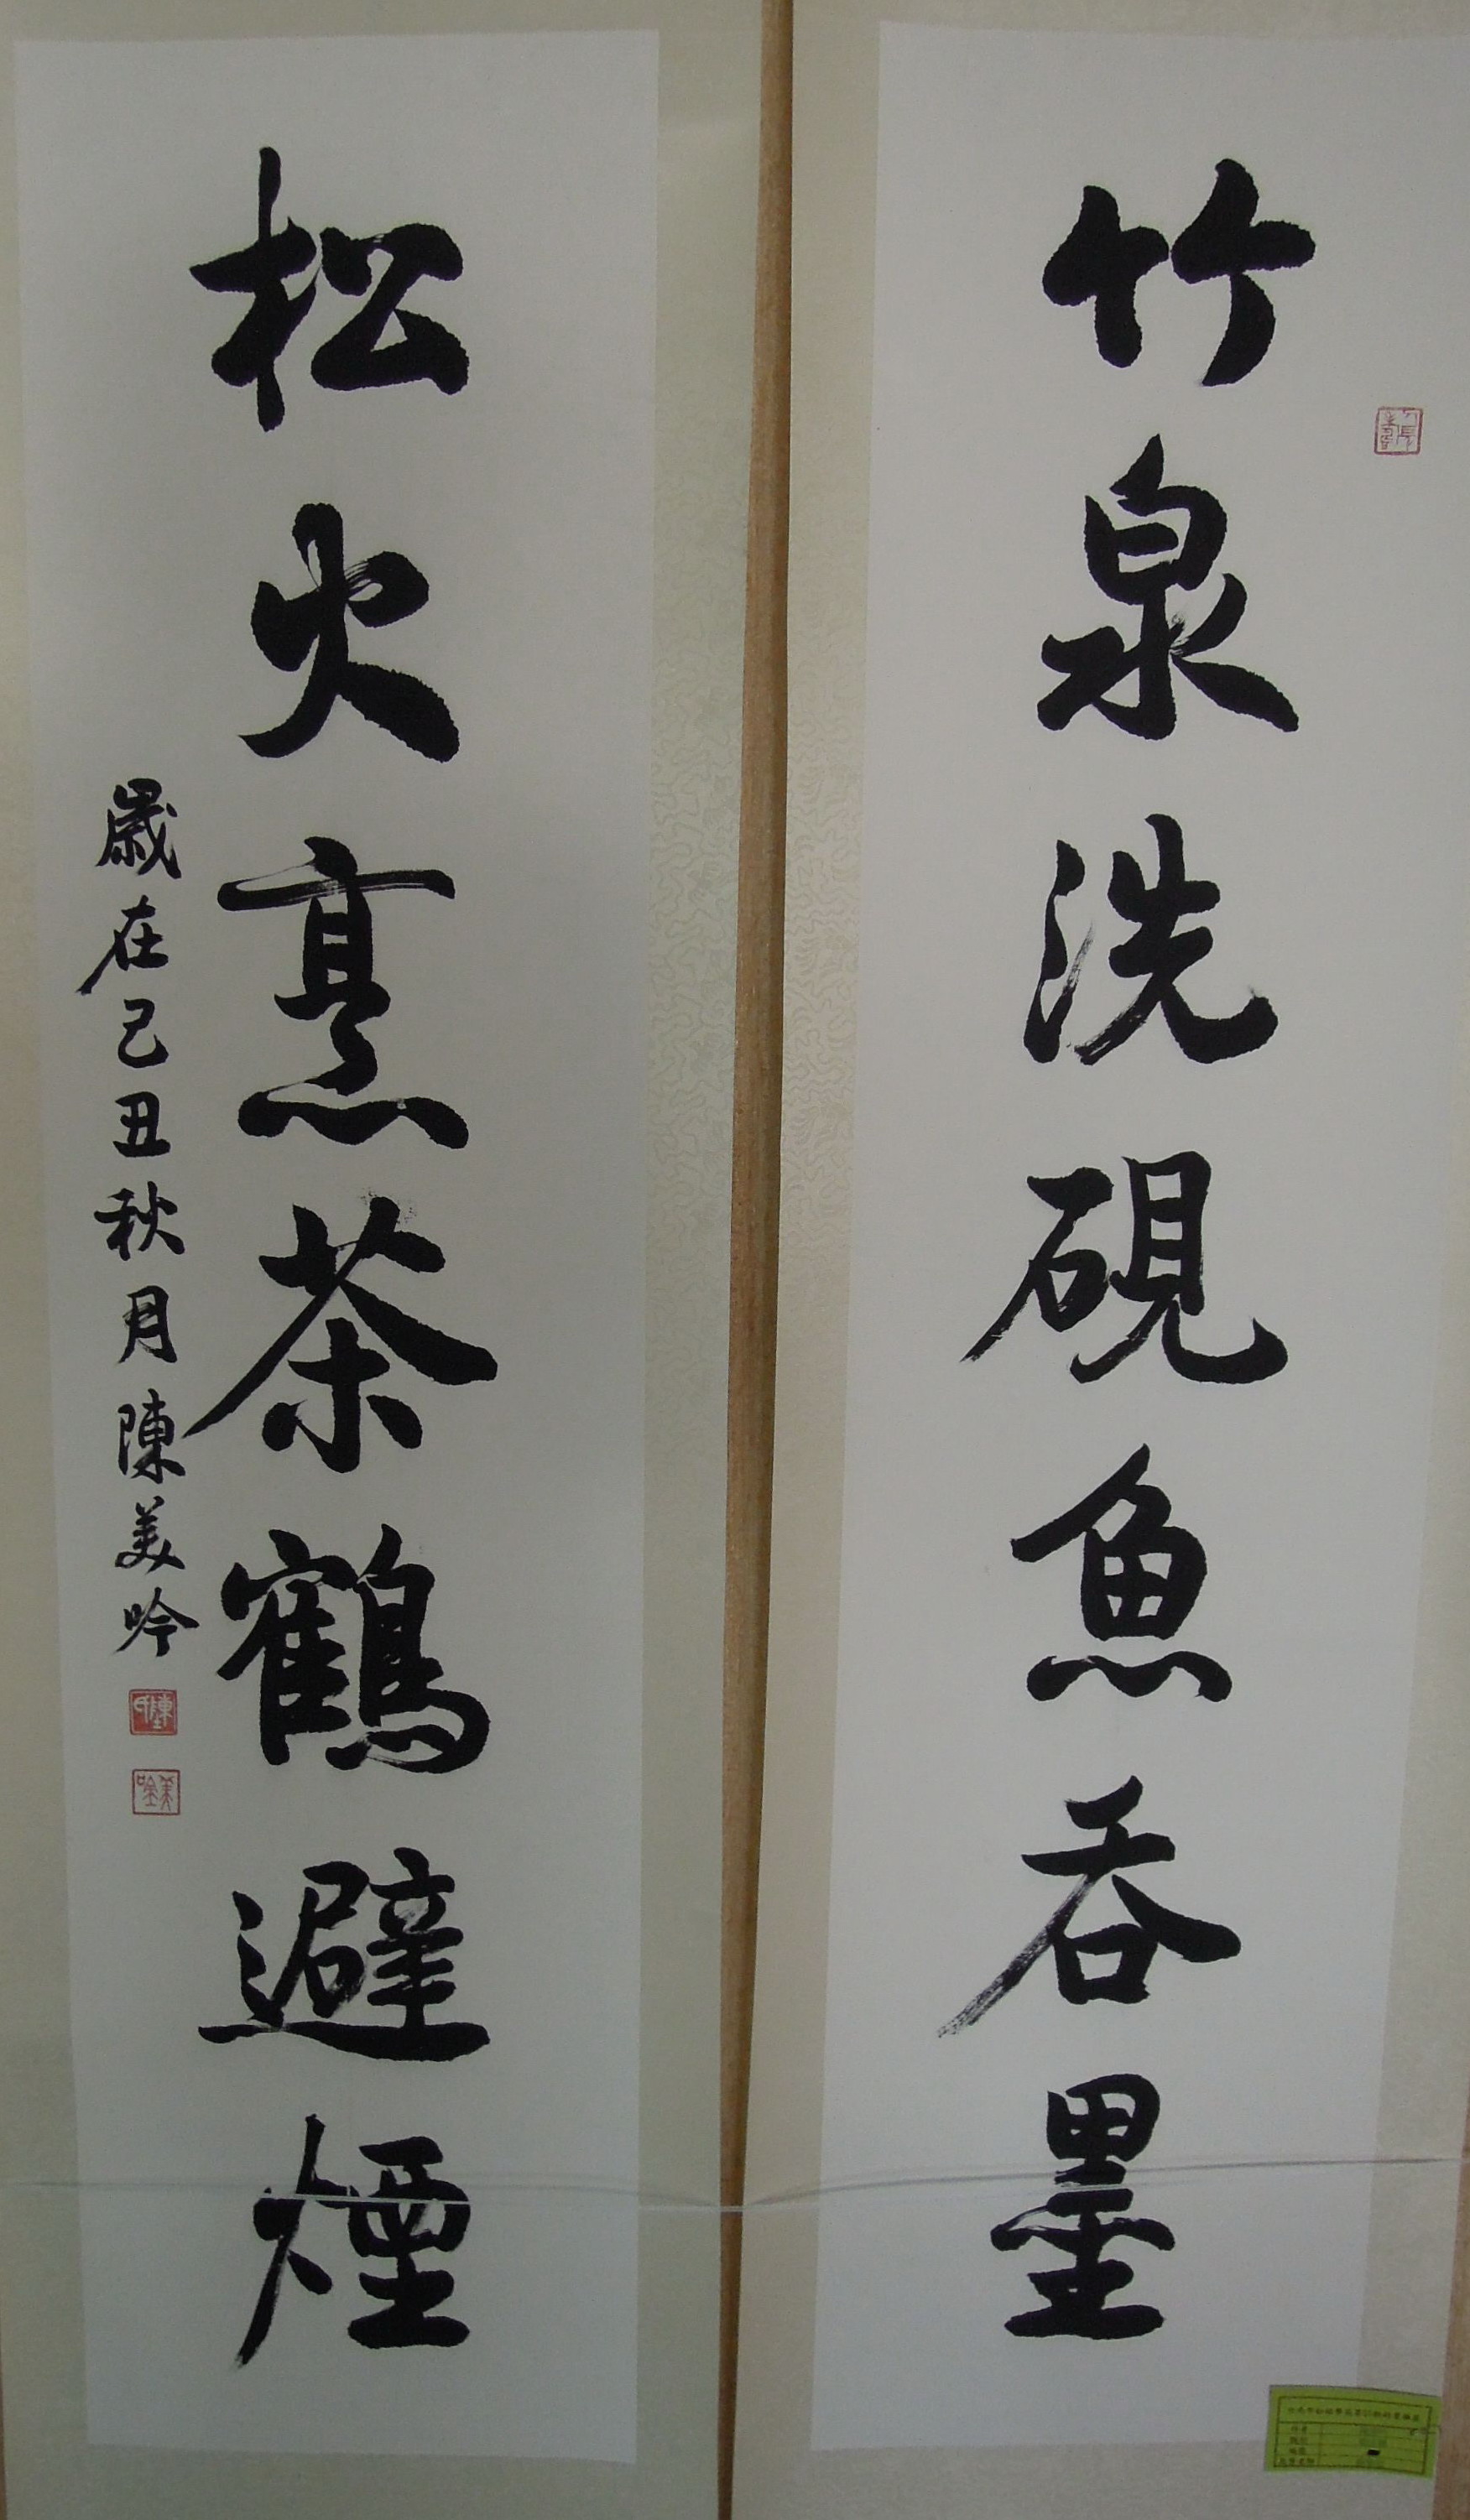 竹泉洗硯魚吞墨
松火烹茶鶴避煙
歲在己丑秋月陳美吟
陳氏
美吟